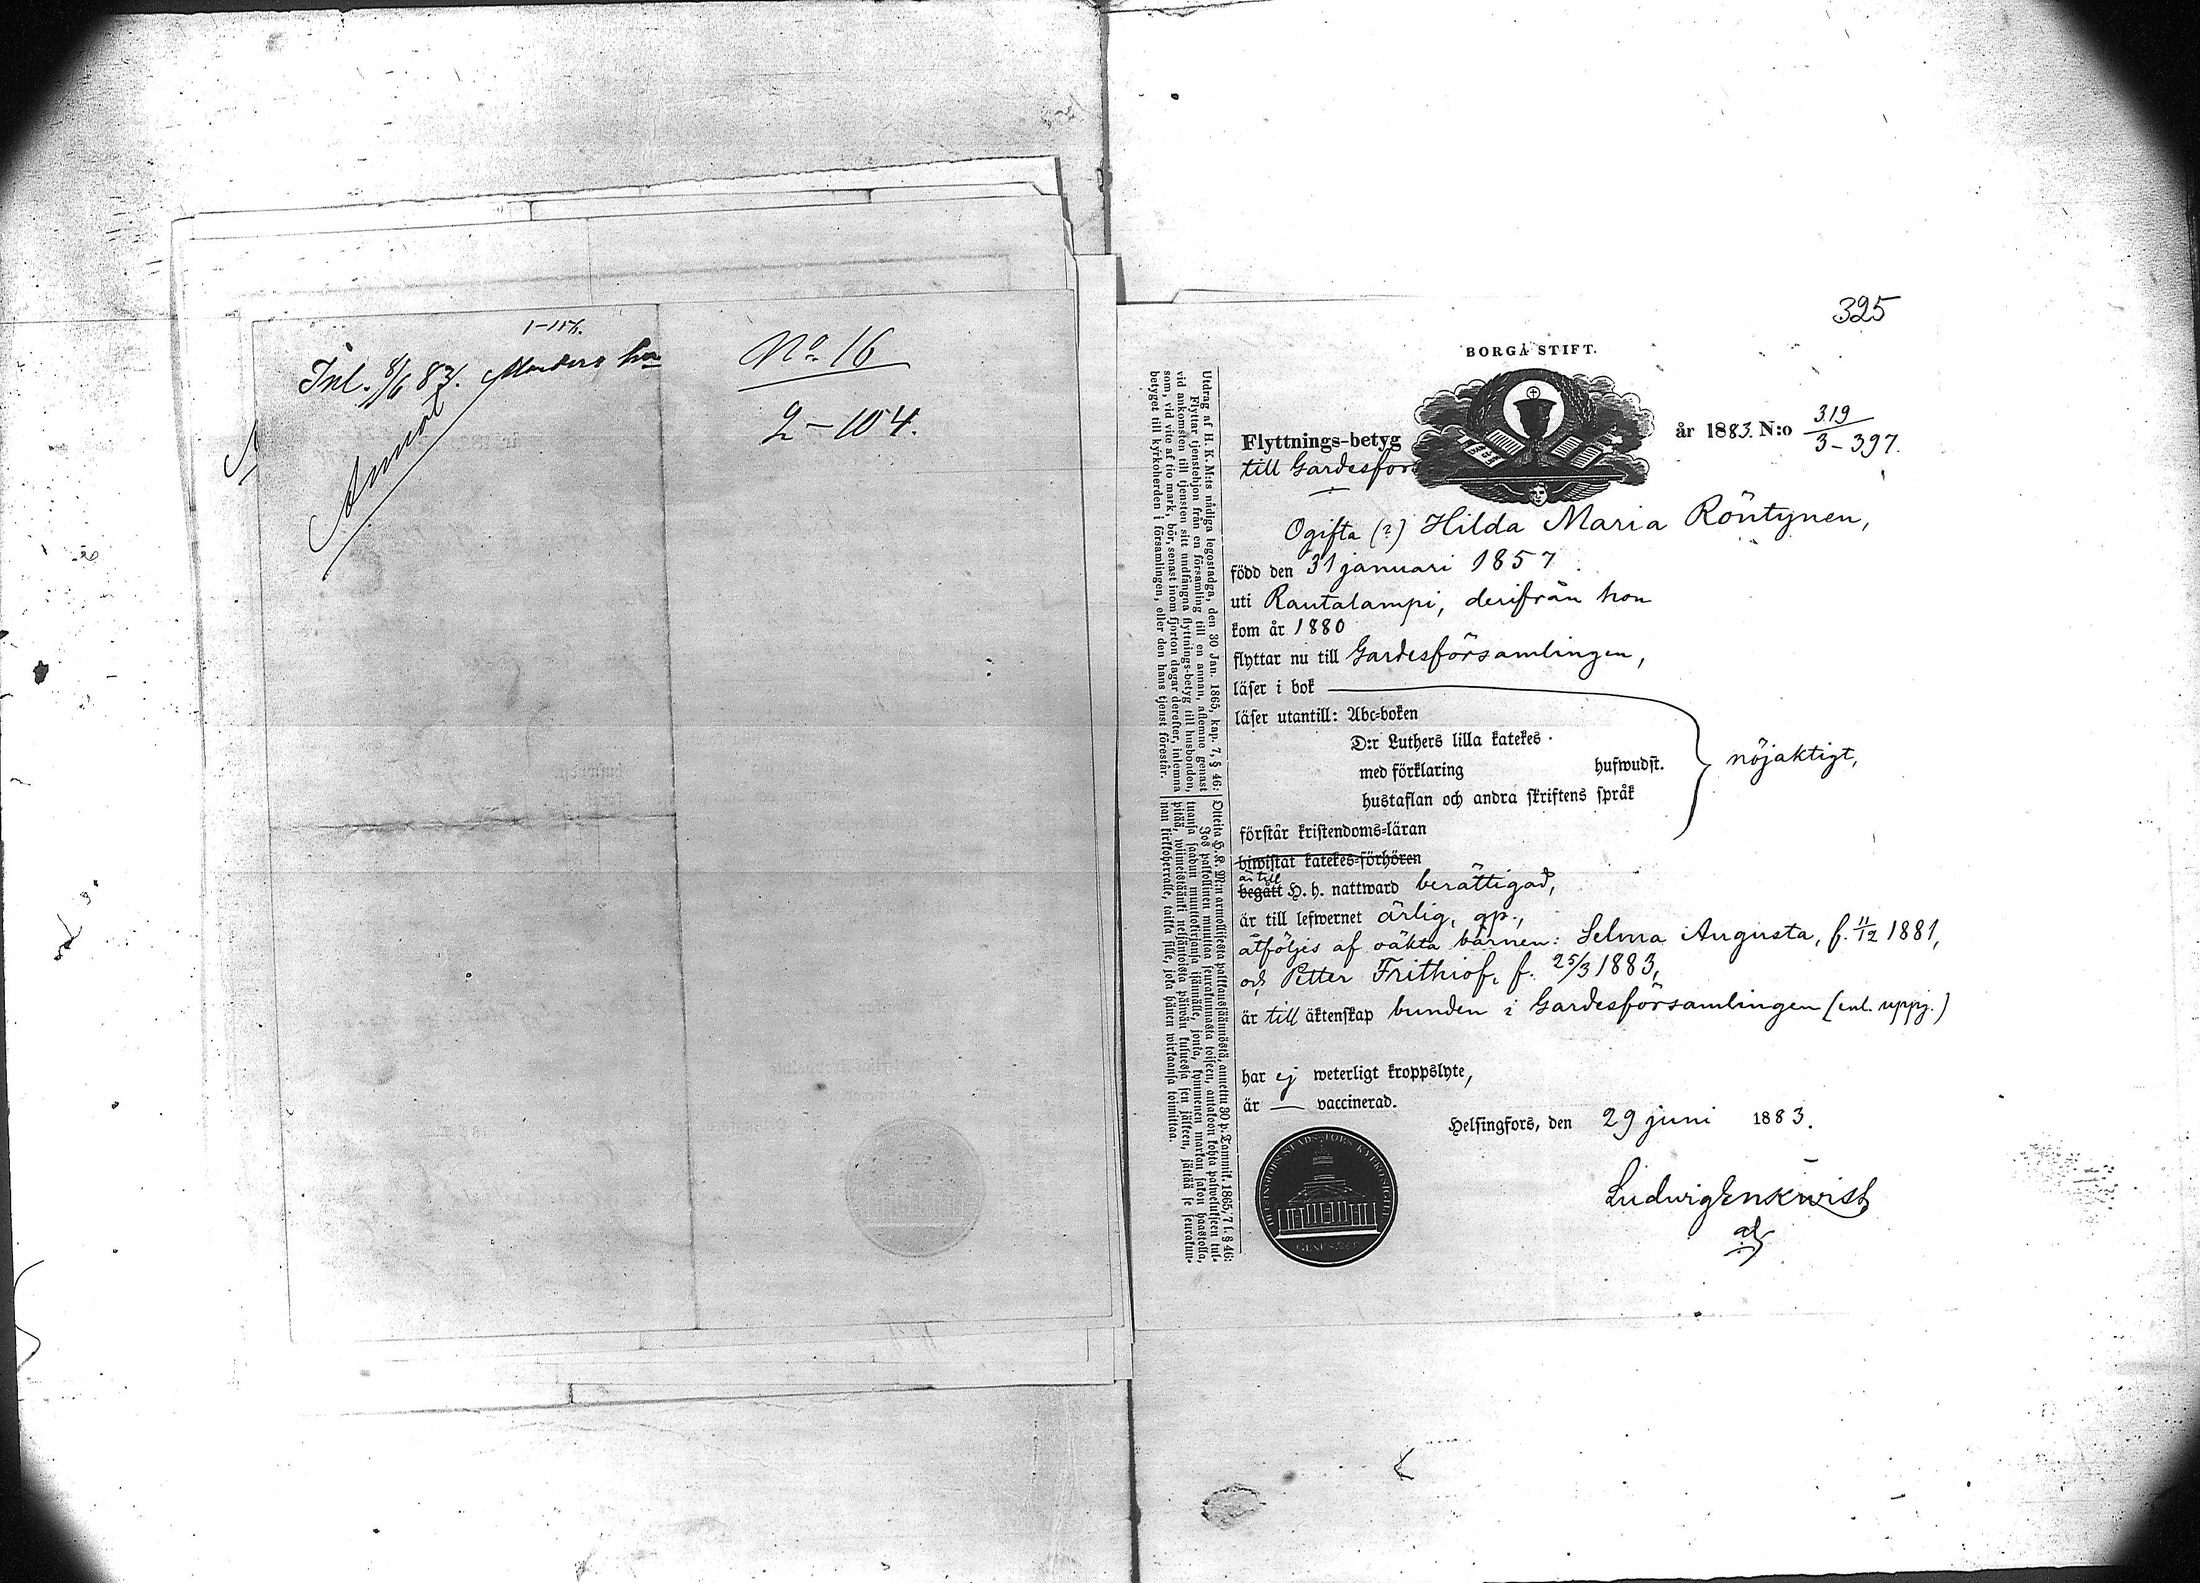 1-114.
Inl. 8/6 83.
Annot
No. 16
2-104.
325
BORGÅ STIFT.
Flyttnings-betyg år 1883. N:o 319
3-397.
till Gardesför
Ogifta (?) Hilda Maria Röntynen,
född den 31 januari 1857.
uti Rautalampi, derifrån hon
kom år 1880
flyttar nu till Gardesförsamlingen,
läser i bok
läser utantill: Abc-boken
D:r Luthers lilla katekes
med förklaring hufwudst.
hustaflan och andra skriftens språk
nöjaktigt,
förstår kristendoms-läran
biwistat katekes-förhören
är till
begått H. h. nattward berättigad,
är till lefwernet ärlig, gp.,
åtföljes af oäkta barnen: Selma Augusta, f. 11/12 1881,
och Petter Frithiof, f. 25/3 1883,
är till äktenskap bunden i Gardesförsamlingen (enl. uppg.)
har ej weterligt kroppslyte,
är — vaccinerad.
Helsingfors, den 29 juni 1883.
Ludwig Enkwist
Utdrag af H. K. M:ts nådiga legostadga, den 30 Jan. 1865, kap. 7, § 46:
Flyttar tjenstehjon från en församling till en annan, aflemne genast
vid ankomsten till tjensten sitt undfångna flyttnings-betyg till husbonden,
som, vid vite af tio mark, bör, senast inom fjorton dagar derefter, inlemna
betyget till kyrkoherden i församlingen, eller den hans tjenst förestår.
Otteita H. K. M:n armollisesta palkkaussäännöstä, annettu 30 p. Tammik. 1865, 7 l. § 46:
Jos palkollinen muuttaa seurakunnasta toiseen, antakoon kohta palwelukseen tul-
tuansa saadun muuttokirjansa isännälle, jonka, kymmenen markan sakon haastolla,
pitää, wiimeistäänki neljäntoista päiwän kuluessa sen jälkeen, jättää se seurakun-
nan kirkkoherralle, taikka sille, joka hänen wirkaansa toimittaa.